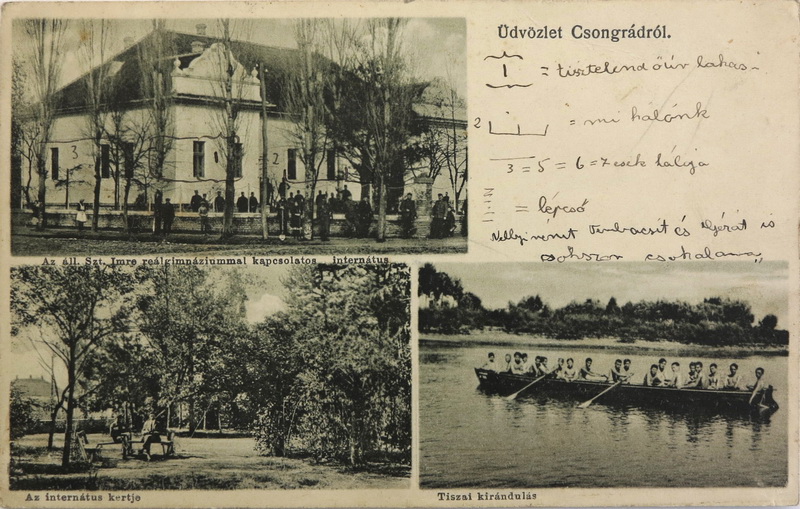 Üdvözlet Csongrádról.
1 = tisztelendő úr lakás
2 = mi hálónk
3 = 5 = 6 = 7 esek hálója
= lépcső
és is
sokszor
3 2
Az áll. Szt. Imre reálgimnáziummal kapcsolatos internátus
Az internátus kertje
Tiszai kirándulás